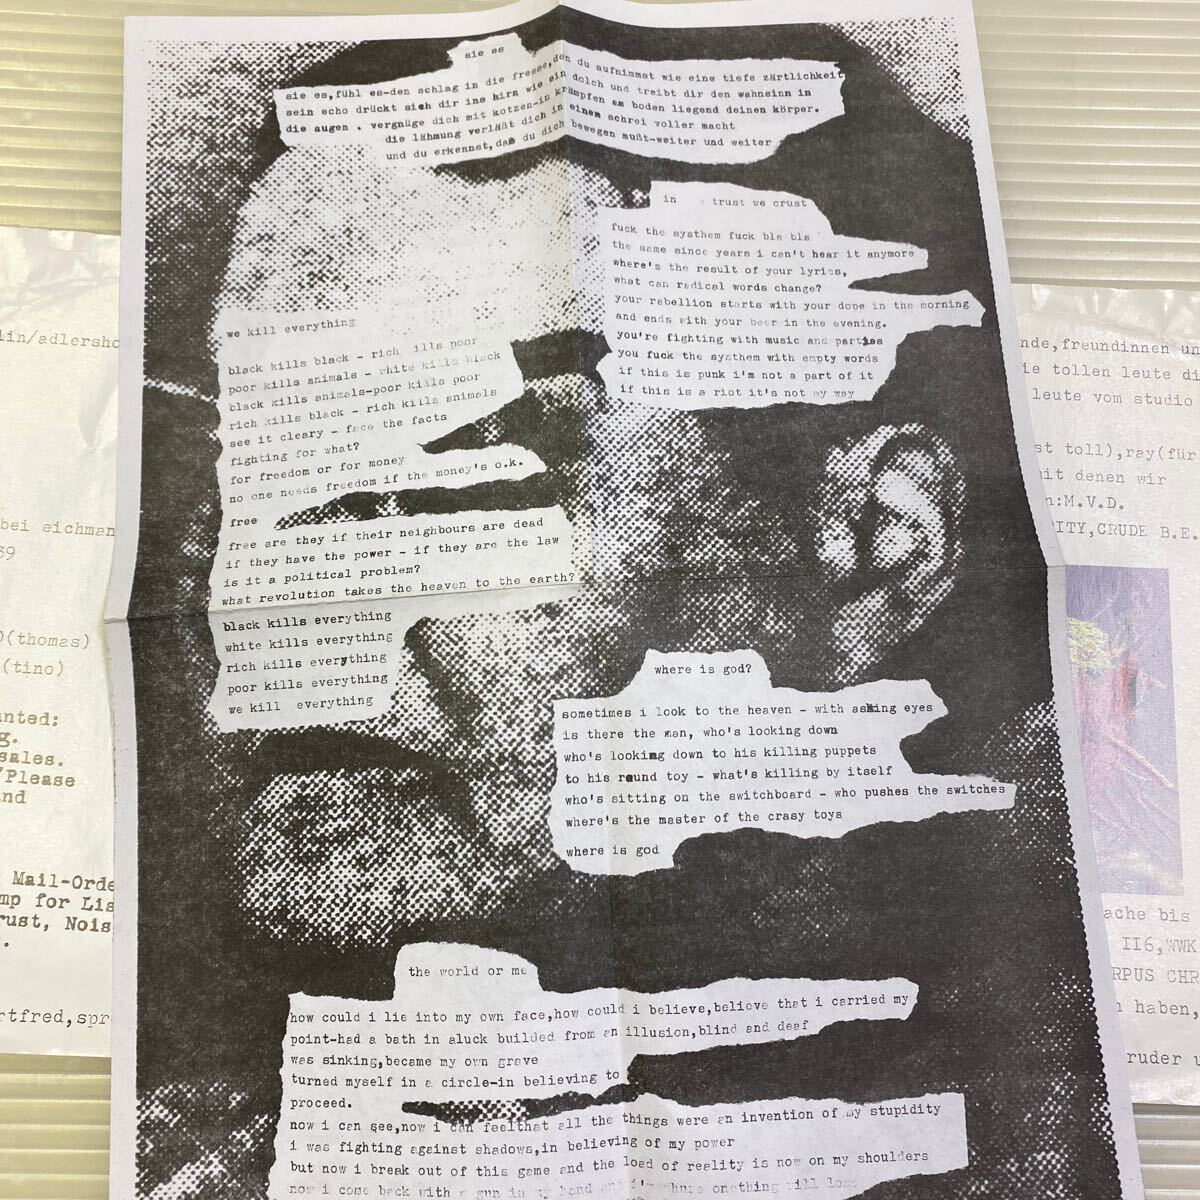 sie es
sie es,fühl es-den schlag in die fresse,den du aufnimmst wie eine tiefe zärtlichkeit
sein echo drückt sich dir ins hirn wie ein dolch und treibt dir den wahnsinn in
die augen . vergnüge dich mit kotzen-in krämpfen am boden liegend deinen körper.
die lähmung verläßt dich in einem schrei voller macht
und du erkennst,daß du dich bewegen mußt-weiter und weiter
in trust we crust
fuck the systhem fuck bla bla
the same since years i can't hear it anymore
where's the result of your lyrics,
what can radical words change?
your rebellion starts with your dope in the morning
and ends with your beer in the evening.
you're fighting with music and parties
you fuck the systhem with empty words
if this is punk i'm not a part of it
if this is a riot it's not my way
we kill everything
black kills black - rich ills poor
poor kills animals - white kills black
black kills animals-poor kills poor
rich kills black - rich kills animals
see it cleary - face the facts
fighting for what?
for freedom or for money
no one needs freedom if the money's o.k.
free
free are they if their neighbours are dead
if they have the power - if they are the law
is it a political problem?
what revolution takes the heaven to the earth?
black kills everything
white kills everything
rich kills everything
poor kills everything
we kill everything
where is god?
sometimes i look to the heaven - with asking eyes
is there the man, who's looking down
who's looking down to his killing puppets
to his round toy - what's killing by itself
who's sitting on the switchboard - who pushes the switches
where's the master of the crasy toys
where is god
the world or me
how could i lie into my own face,how could i believe,believe that i carried my
point-had a bath in aluck builded from an illusion,blind and deaf
was sinking,became my own grave
turned myself in a circle-in believing to
proceed.
now i can see,now i can feelthat all the things were an invention of my stupidity
i was fighting against shadows,in believing of my power
but now i break out of this game and the load of reality is now on my shoulders
now i come back with a gun in my hand
lin/adlersho
bei eichman
39
(thomas)
(tino)
nted:
g.
sales.
/Please
nd
Mail-Orde
mp for Lis
rust, Nois
.
rtfred,spr
nde,freundinnen un
ie tollen leute di
leute vom studio
st toll),ray(für
mit denen wir
n:M.V.D.
ITY,CRUDE B.E.
ache bis
II6,WWK
RPUS CHR
n haben,
ruder u